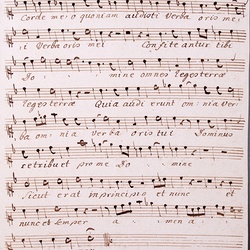 Corde meo quoniam audisti Verba oris me:
i Verba oris mei Confiteantur tibi
Do mine omnes reges terræ
reges terræ Quia audierunt omnia Ver:
ba omnia verba oris tui Dominus
retribuet pro me Do mine
Sicut erat in principio et nunc et
nunc et semper a men a